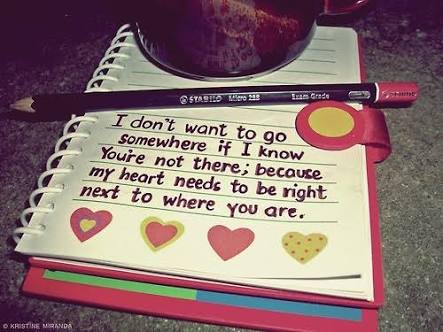 STABILO Micro 288 Exam Grade
I don't want to go
somewhere if I know
You're not there; because
my heart needs to be right
next to where you are.
© KRISTINE MIRANDA